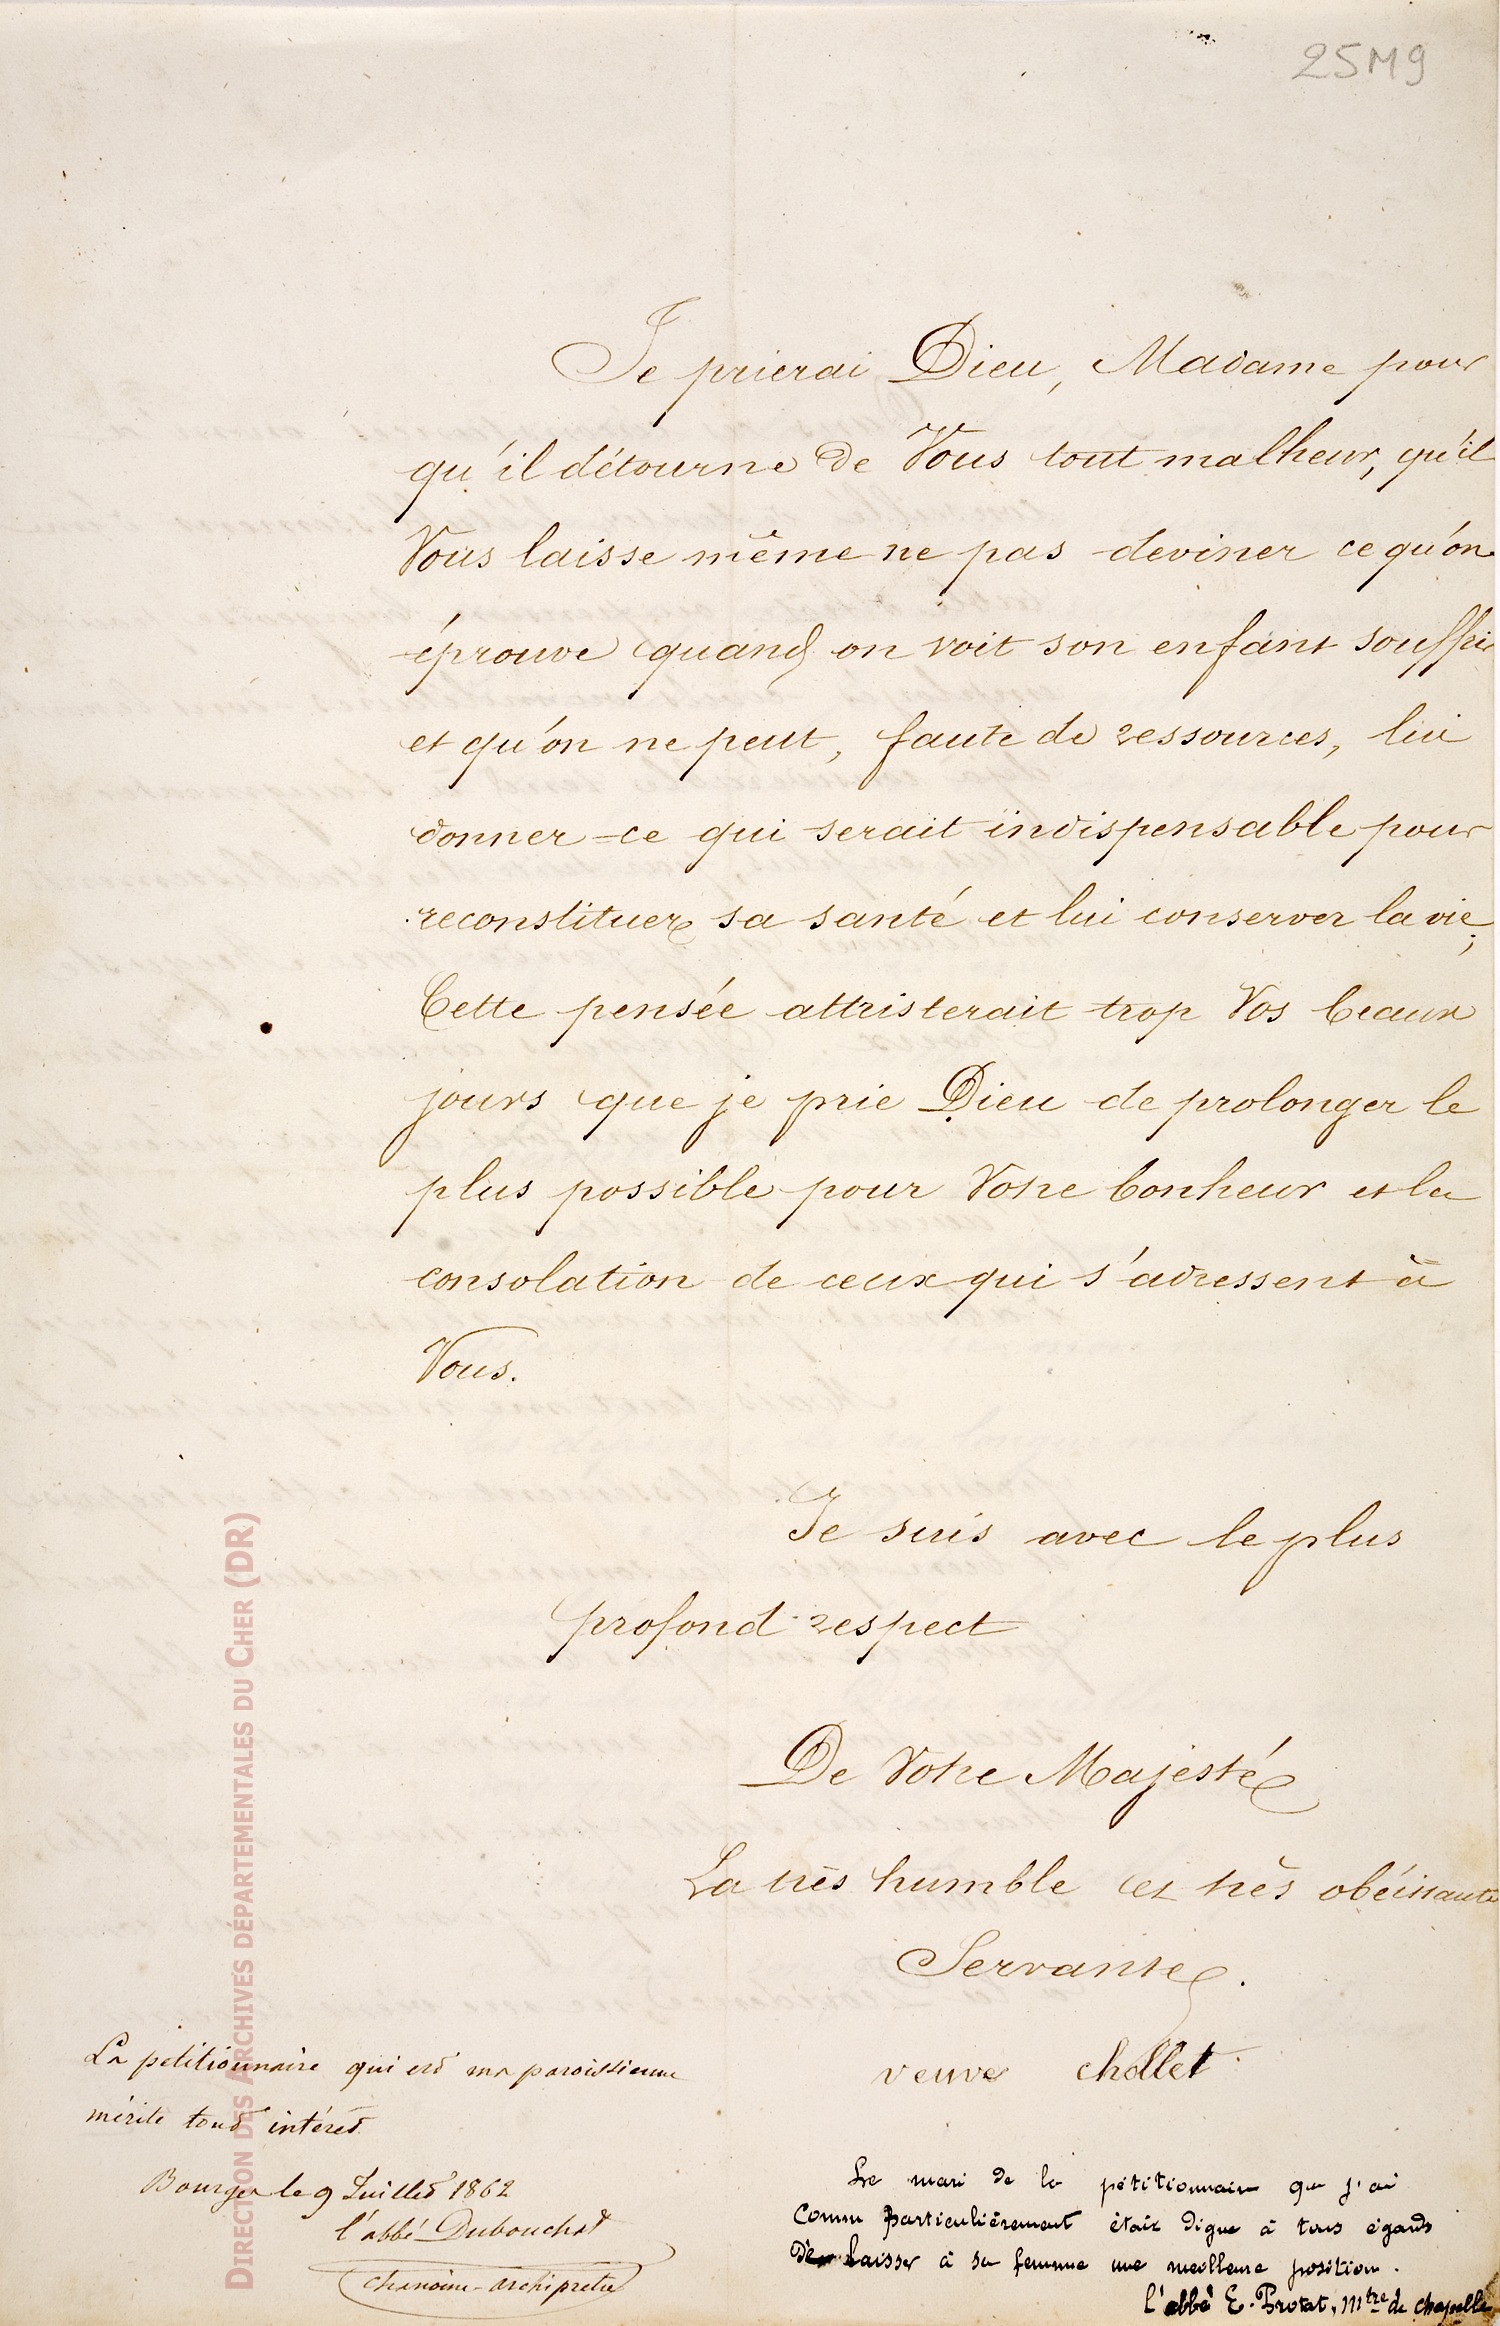 25M9
Je prierai Dieu, Madame pour
qu'il détourne de Vous tout malheur, qu'il
Vous laisse même ne pas deviner ce qu'on
éprouve quand on voit son enfant souffrir
et qu'on ne peut, faute de ressources, lui
donner ce qui serait indispensable pour
reconstituer sa santé et lui conserver la vie;
Cette pensée attristerait trop Vos beaux
jours que je prie Dieu de prolonger le
plus possible pour Votre bonheur et la
consolation de ceux qui s'adressent à
Vous.
Je suis avec le plus
profond respect
De Votre Majesté
La très humble et très obéissante
Servante.
veuve chollet
La petitionnaire qui est ma paroissienne
mérite tout intérêt
Bourges le 9 Juillet 1862
l'abbé Dubouchat
chanoine-archiprêtre
Le mari de la pétitionnaire que j'ai
Connu particulièrement était digne à tous égards
De laisser à sa femme une meilleure position.
l'abbé E. Protat, mtre de chapelle
DIRECTION DES ARCHIVES DÉPARTEMENTALES DU CHER (DR)